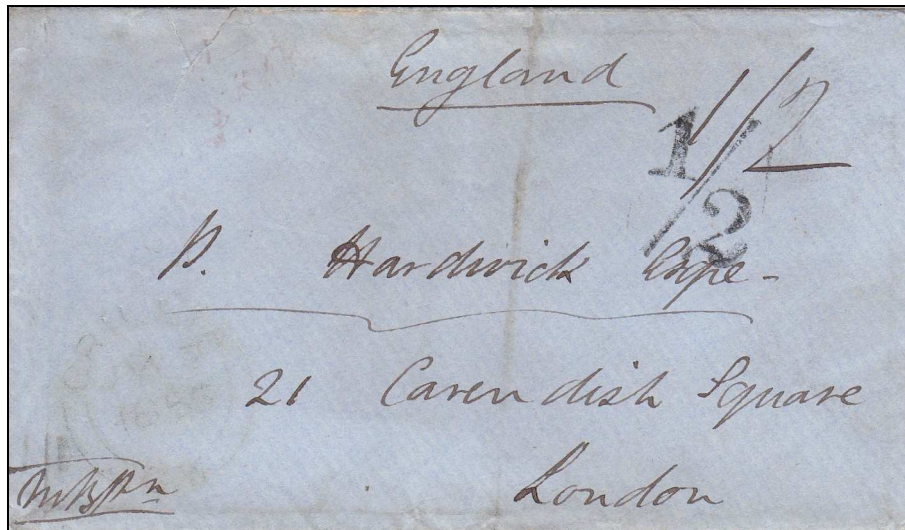 England
1/2
1/2
P. Hardwick Esqre
21 Cavendish Square
London